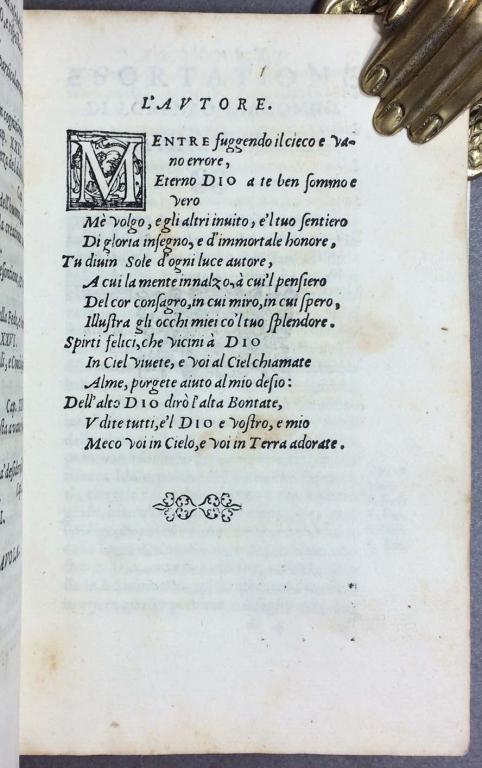 L'AVTORE.
MENTRE fuggendo il cieco e va-
no errore,
Eterno DIO a te ben sommo e
vero
Mè volgo, e gli altri inuito, e'l tuo sentiero
Di gloria insegno, e d'immortale honore,
Tu diuin Sole d'ogni luce autore,
A cui la mente innalzo, à cui'l pensiero
Del cor consagro, in cui miro, in cui spero,
Illustra gli occhi miei co'l tuo splendore.
Spirti felici, che vicini à DIO
In Ciel viuete, e voi al Ciel chiamate
Alme, porgete aiuto al mio desio:
Dell'alto DIO dirò l'alta Bontate,
Vdite tutti, e'l DIO e vostro, e mio
Meco voi in Cielo, e voi in Terra adorate.